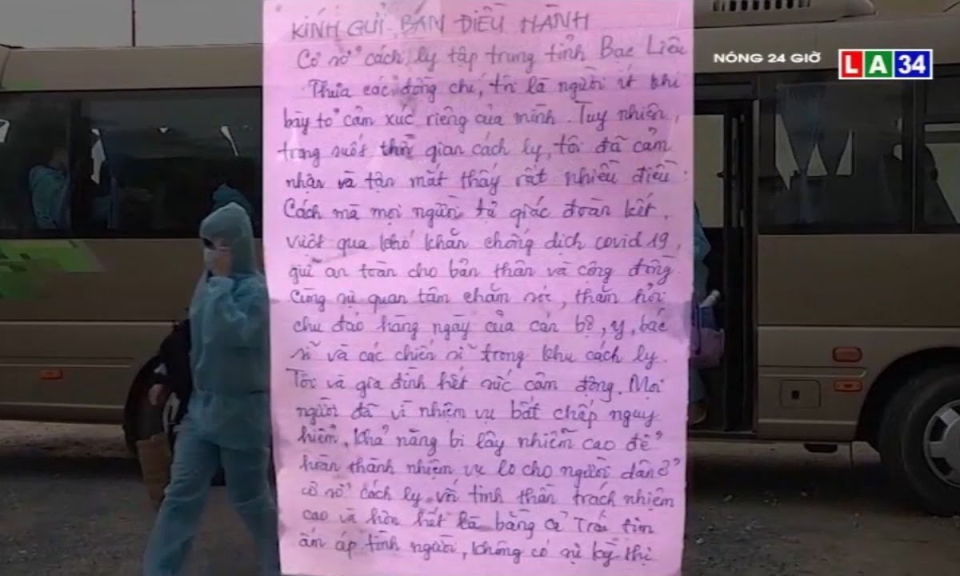 KÍNH GỬI BAN ĐIỀU HÀNH
NÓNG 24 GIỜ
LA34
Cơ sở cách ly tập trung tỉnh Bạc Liêu
Thưa các đồng chí, tôi là người ít khi
bày tỏ cảm xúc riêng của mình. Tuy nhiên,
trong suốt thời gian cách ly, tôi đã cảm
nhận và tận mắt thấy rất nhiều điều.
Cách mà mọi người tự giác đoàn kết,
vượt qua khó khăn chống dịch covid 19,
giữ an toàn cho bản thân và cộng đồng
cùng sự quan tâm chăm sóc, thăm hỏi
chu đáo hàng ngày của cán bộ, y, bác
sĩ và các chiến sĩ trong khu cách ly.
Tôi và gia đình hết sức cảm động. Mọi
người đã vì nhiệm vụ bất chấp nguy
hiểm, khả năng bị lây nhiễm cao để
hoàn thành nhiệm vụ lo cho người dân ở
cơ sở cách ly với tinh thần trách nhiệm
cao và hơn hết là bằng cả Trái tim
ấm áp tình người, không có sự kỳ thị